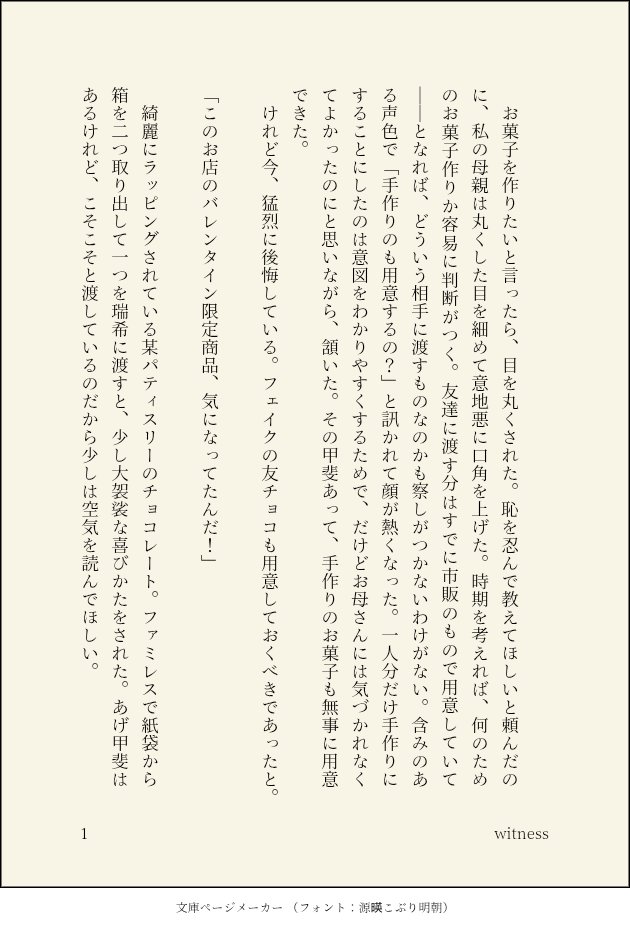 お菓子を作りたいと言ったら、目を丸くされた。恥を忍んで教えてほしいと頼んだの
に、私の母親は丸くした目を細めて意地悪に口角を上げた。時期を考えれば、何のため
のお菓子作りか容易に判断がつく。友達に渡す分はすでに市販のもので用意していて
――となれば、どういう相手に渡すものなのかも察しがつかないわけがない。含みのあ
る声色で「手作りのも用意するの？」と訊かれて顔が熱くなった。一人分だけ手作りに
することにしたのは意図をわかりやすくするためで、だけどお母さんには気づかれなく
てよかったのにと思いながら、頷いた。その甲斐あって、手作りのお菓子も無事に用意
できた。
けれど今、猛烈に後悔している。フェイクの友チョコも用意しておくべきであったと。
「このお店のバレンタイン限定商品、気になってたんだ！」
綺麗にラッピングされている某パティスリーのチョコレート。ファミレスで紙袋から
箱を二つ取り出して一つを瑞希に渡すと、少し大袈裟な喜びかたをされた。あげ甲斐は
あるけれど、こそこそと渡しているのだから少しは空気を読んでほしい。
witness
1
文庫ページメーカー （フォント：源暎こぶり明朝）